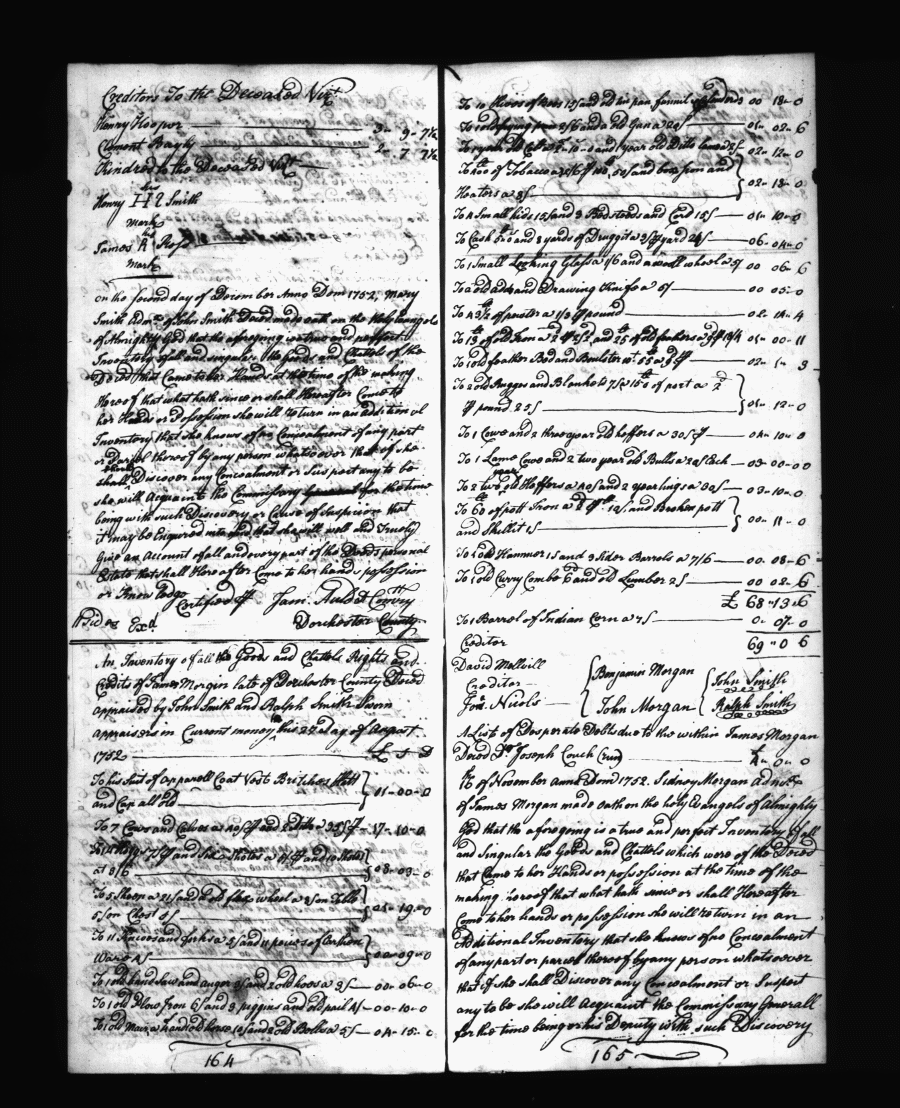 Creditors To the Deceased Vizt
Henry Hooper 3 - 9 - 7½
Clement Bayly 2 - 7 - 7½
Kindred to the Deceased Vizt
his
Henry H Smith
mark
his
James R Ross
mark
on the second day of December Anno Dom 1752, Mary
Smith Admx of John Smith Deced made oath on the Holy Evangels
of Almighty God that the aforegoing is a true and perfect
Inventory of all and singular the Goods and Chattels of the
Deced that Came to her Hands at the time of the making
Hereof that what hath since or shall Hereafter Come to
her Hands or Possession she will return in an additional
Inventory that she knows of no Concealment of any part
or Parcel thereof by any person whatsoever that if she
shall Discover any Concealment or Suspect any to be
she will Acquaint the Commissary for the time
being with such Discovery or Cause of Suspicion that
it may be Enquired into and that she will well and Truely
give an Account of all and every part of the Deceds personal
Estate that shall Hereafter Come to her hands possession
or Knowledge
Certified p Jam. Auld D Comry
11 Sides Exd. Dorchester County
An Inventory of all the Goods and Chattels Rights and
Credits of James Morgin late of Dorchester County Deced
appraised by John Smith and Ralph Smith Sworn
appraisers in Current money this 22 day of August
1752 £ S D
To his Suit of apparell Coat Vest Britches Hatt
and Cap all old } 11 - 00 - 0
To 7 Cows and Calves a 40/ p and 17 - 10 - 0
at 8/6 } 08 - 03 - 0
To 5 Sheep a and old flax wheel a
5/ on Chest 4/ 19 - 0
To 11 Knives and forks a 5/ and 11 pieces of Earthen
Ware 4/ } 00 - 09 - 0
To 1 old handsaw and auger 3/ and 2 old hoes a 3/ 00 - 06 - 0
To 1 old Plow Iron 6/ and 3 piggins and old pail 4/ 00 - 10 - 0
To 1 old Mare a and old horse and 2 old Bells a 5/ 04 - 15 - 0
164
To 10 of Bees 15/ and old tin pan funnil 00 18 - 0
To 1 old frying pan 2/6 and a old Gun a 20/ 01 - 02 - 6
02 - 12 - 0
of Tobacco a p and box Iron and
Heaters a 8/ } 02 - 18 - 0
To 4 Small hides 15/ and 3 Bedsteeds and Cord 15/ 01 - 10 - 0
To Cash and 8 yards of Druggit a 3/ p yard 24/ 06 - 04 - 0
To 1 Small Looking Glass a 1/6 and a wooll wheel a 5/ 00 06 - 6
To a old adds and Drawing Knife a 5/ 00 05 - 0
of pewter a 1/3 p pound 4
To of old Iron a and 25 lb of old feathers a 01 - 00 - 11
To 1 old feather Bed and Boulster wt 55 a 9 p 02 - 1 - 3
To 2 old Ruggs and Blanket 7/ & 15 lb of port a 2d
p pound 25/ } 01 - 12 - 0
To 1 Cowe and 2 three year old heffers a 30/ p 04 - 10 - 0
To 1 Lame Cowe and 2 two year old Bulls a 20/ Each 03 - 00 - 00
To 2 two year old Heffers a 40/ and 2 yearlings a 30/ 03 - 10 - 0
To 60 of pott Iron a 2 p lb. 10/ and Broken pott
and Skillit 1/ } 00 - 11 - 0
To 1 old Hammer 1/ and 3 Sider Barrels a 7/6 00 - 08 - 6
To 1 old Curry Combe 6d and old Lumber 2/ 00 02 - 6
£ 68 - 13 - 6
To 1 Barrel of Indian Corn a 7/ 0 - 07 - 0
Creditor 69 - 0 6
David Melvill
Creditor
Jos. Nicols
{ Benjamin Morgan
John Morgan
{ John Smith
Ralph Smith
A List of Desperate Debts due to the within James Morgan
Deced Dr Joseph Couch £ 4 - 0 - 0
16 of November anno Dom 1752. Sidney Morgan admx
of James Morgan made oath on the holy Evangels of Almighty
God that the aforegoing is a true and perfect Inventory of all
and singular the Goods and Chattels which were of the Deced
that Came to her Hands or possession at the time of the
making hereof that what hath since or shall Hereafter
Come to her hands or possession she will return in an
Additional Inventory that she knows of no Concealment
of any part or parcell thereof by any person whatsoever
that if she shall Discover any Concealment or Suspect
any to be she will Acquaint the Commissary Generall
for the time being or his Deputy with such Discovery
165